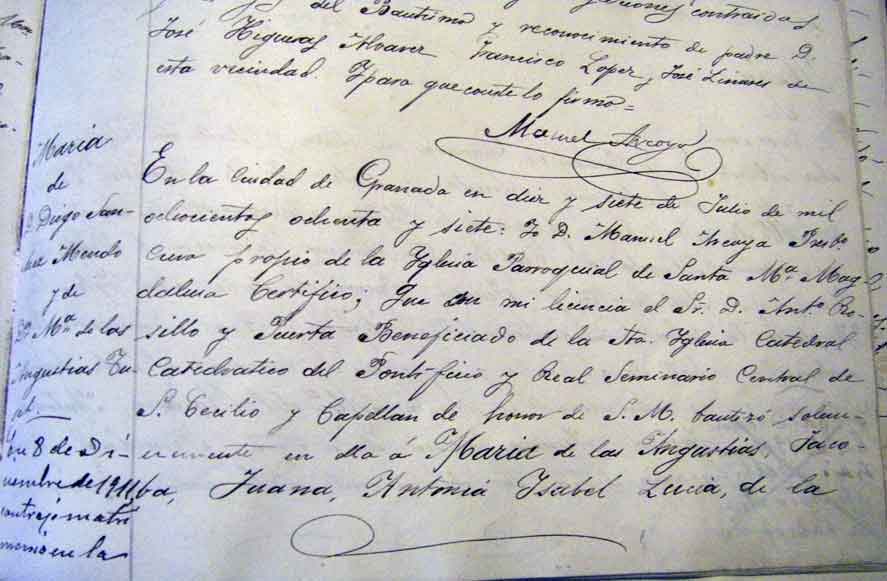 del Bautismo y
contraidas
reconocimiento de padre D.
José Higueras Alvarez Francisco Lopez y José Linares de
esta vecindad. Y para que conste lo firmo=
Manuel Arroyo
Maria
de
D. Diego San-
chez Mendo
y de
Dª Mª de las
Angustias
En la Ciudad de Granada en diez y siete de Julio de mil
ochocientos ochenta y siete: Yo D. Manuel Arroyo Presbº
Cura propio de la Yglesia Parroquial de Santa Mª Mag-
dalena Certifico; Que con mi licencia el Sr. D. Antº Ro-
sillo y Puerta Beneficiado de la Sta. Yglesia Catedral
Catedratico del Pontificio y Real Seminario Central de
S. Cecilio y Capellan de honor de S. M. bautizó solem-
nemente en ella á Maria de las Angustias, Jaco-
ba, Juana, Antonia Ysabel Lucia, de la
En 8 de Di-
ciembre de 1911,
contrajo matri
monio en la